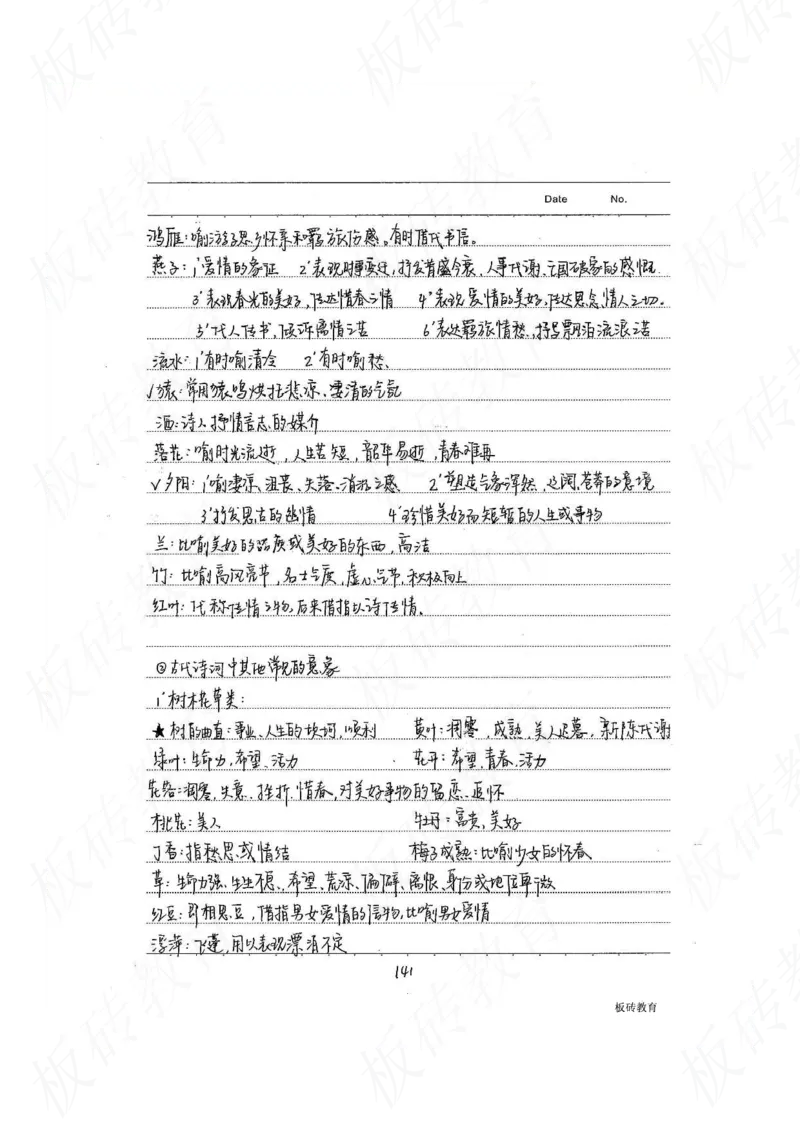 Date No.
鸿雁：喻游子思乡怀亲和羁旅伤感。有时借代书信。
燕子：1'爱情的象征 2'表现时事变迁，抒发昔盛今衰、人事代谢、亡国破家的感慨.
3'表现春光的美好，传达惜春之情 4'表现爱情的美好，传达思念情人之切.
5'代人传书，倾诉离情之苦 6'表达羁旅情愁、抒写漂泊流浪之苦
流水：1'有时喻清冷 2'有时喻愁、
√猿：常用猿鸣烘托悲凉、凄清的气氛
酒：诗人抒情言志的媒介
落花：喻时光流逝，人生苦短，韶华易逝，青春难再
√夕阳：1'喻凄凉、沮丧、失落、消沉之感 2'塑造气象浑然、辽阔、苍莽的意境
3'抒发思古的幽情 4'珍惜美好而短暂的人生或事物
兰：比喻美好的品质或美好的东西，高洁
竹：比喻高风亮节，名士气质，虚心气节，积极向上
红叶：代称传情之物，后来借指以诗传情、
②古代诗词中其他常见的意象
1'树木花草类：
★树的曲直：事业、人生的坎坷，顺利 黄叶：凋零，成熟，美人迟暮，新陈代谢
绿叶：生命力，希望、活力 花开：希望、青春、活力
花落：凋零，失意、挫折，惜春，对美好事物的留恋、追怀
桃花：美人 牡丹：富贵，美好
丁香：指愁思或情结 梅子成熟：比喻少女的怀春
草：生命力强、生生不息、希望、荒凉、偏僻、离恨、身份或地位卑微
红豆：即相思豆，借指男女爱情的信物，比喻男女爱情
浮萍：飞蓬，用以表现漂泊不定
141
板砖教育